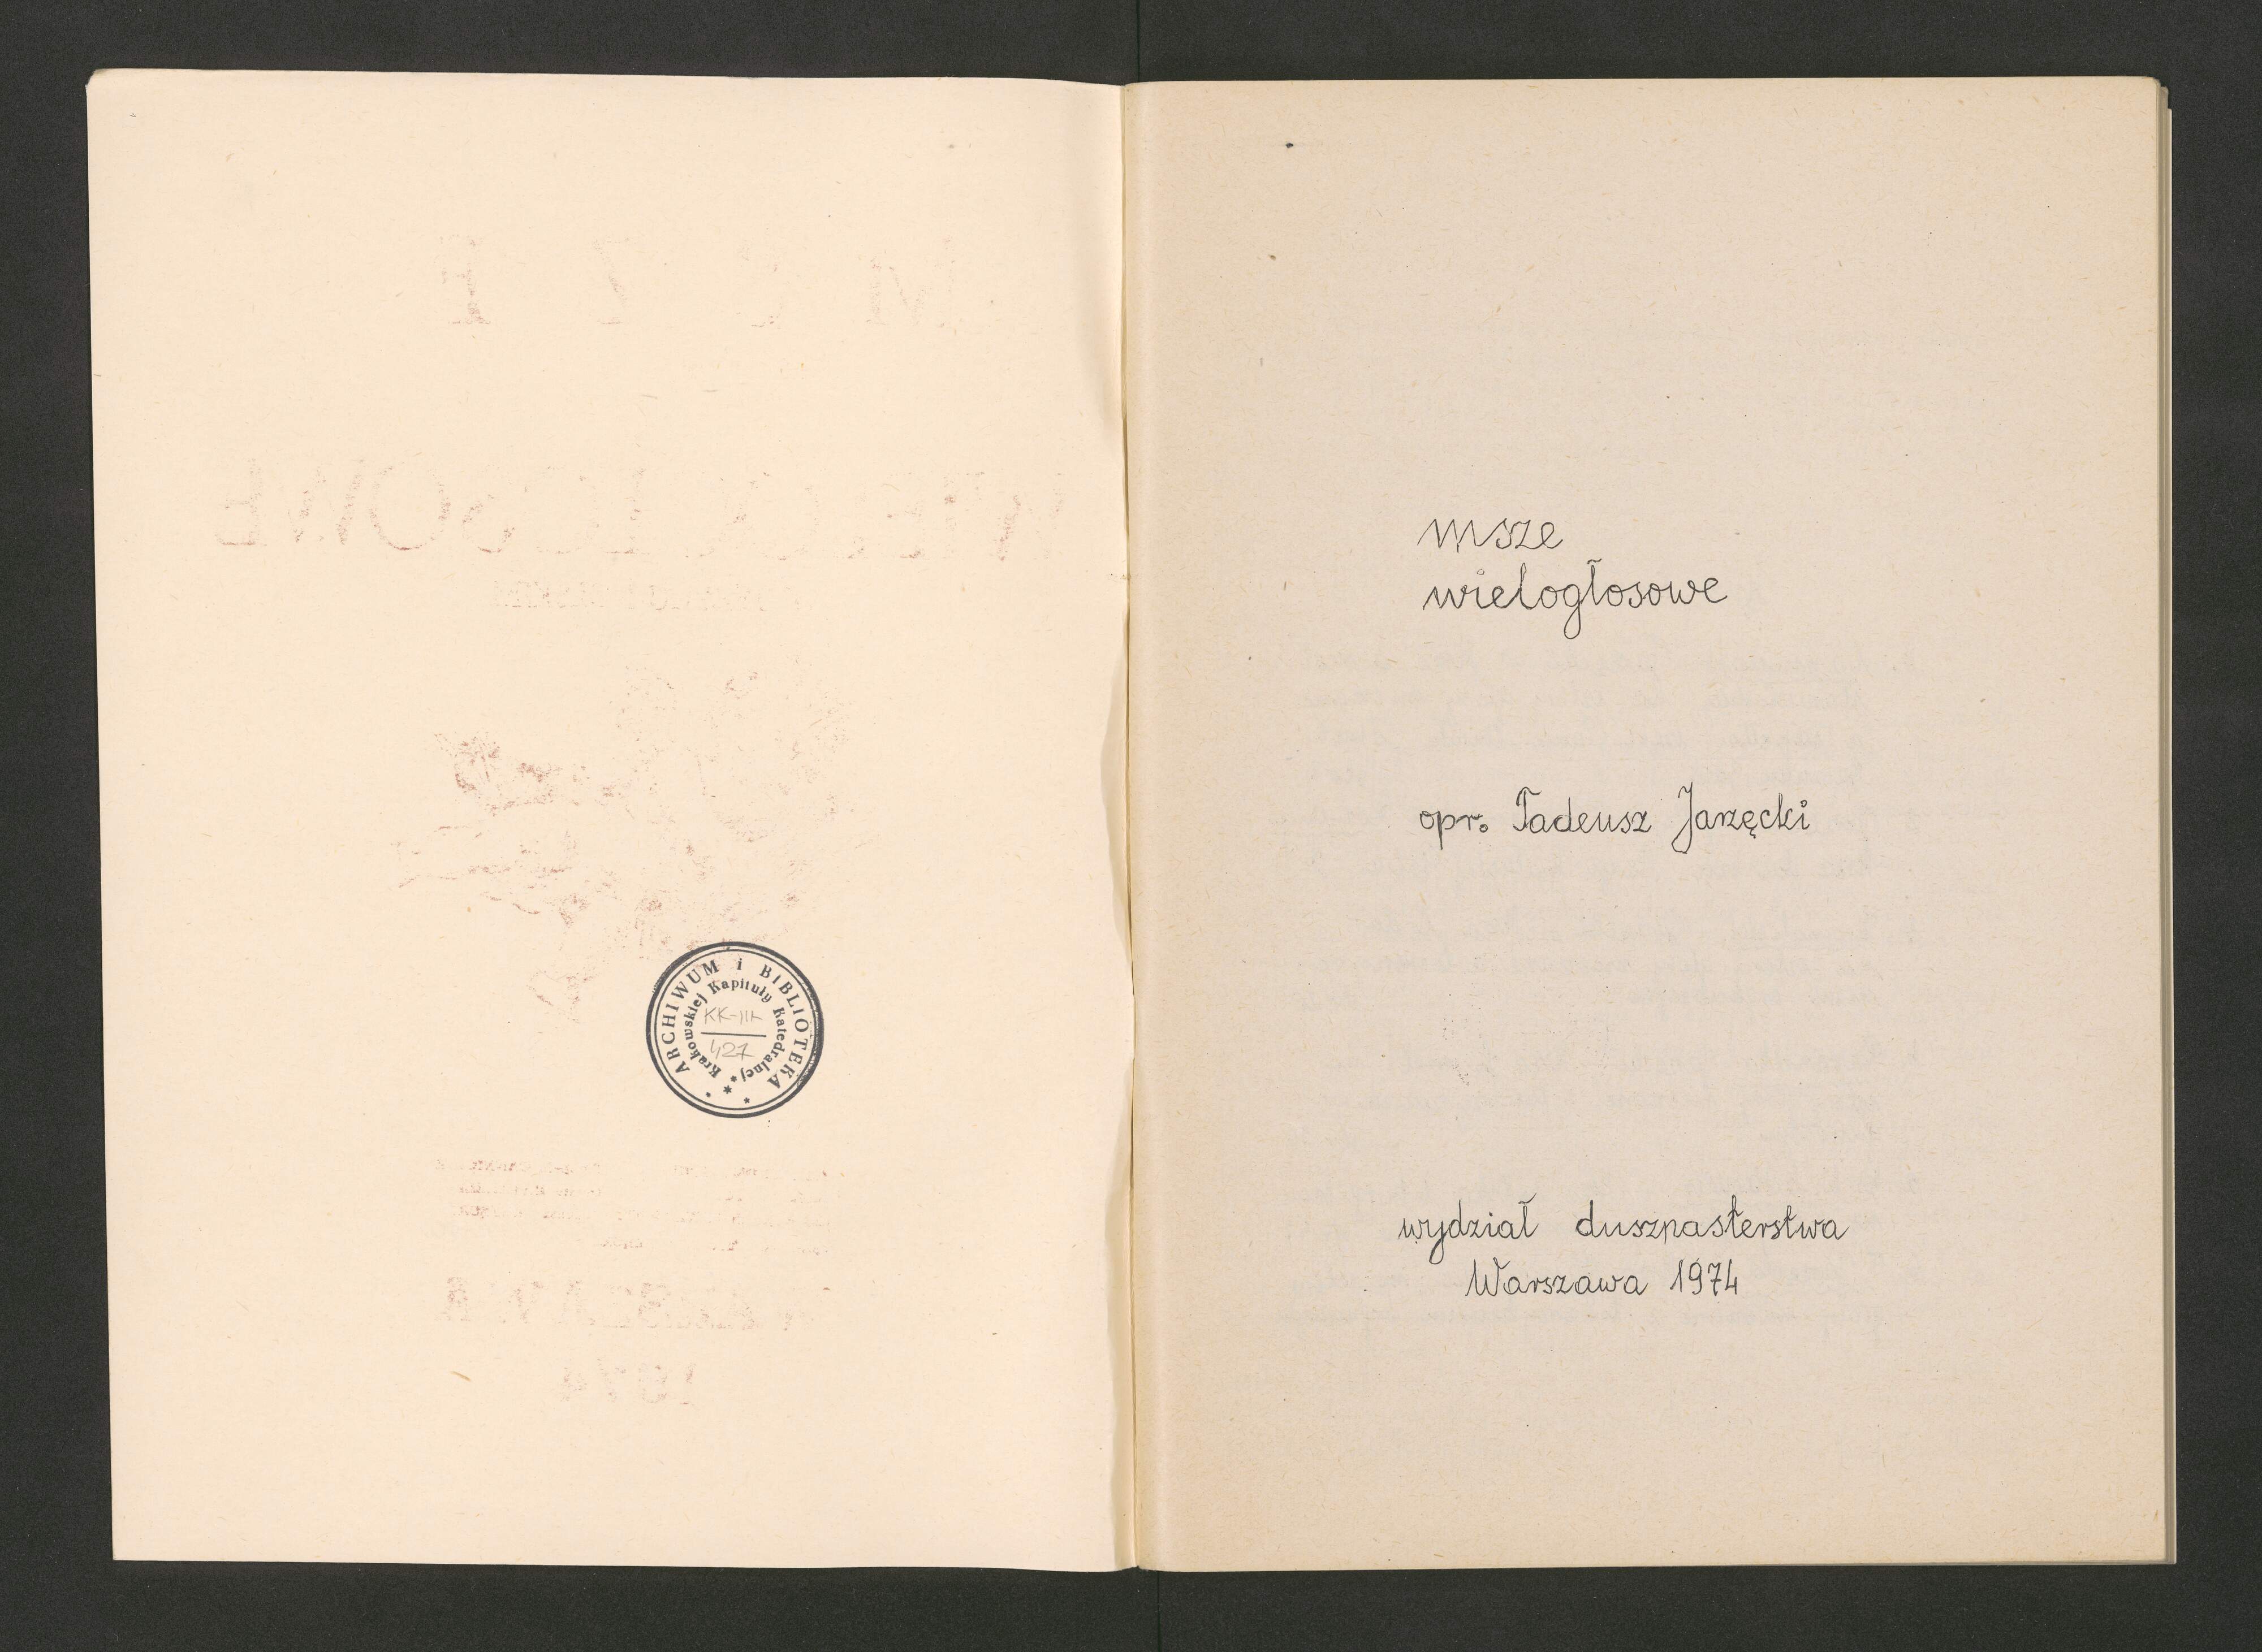 ARCHIWUM i BIBLIOTEKA
Krakowskiej Kapituły Katedralnej
KK-III
427
msze
wielogłosowe
opr. Tadeusz Jarzęcki
wydział duszpasterstwa
Warszawa 1974